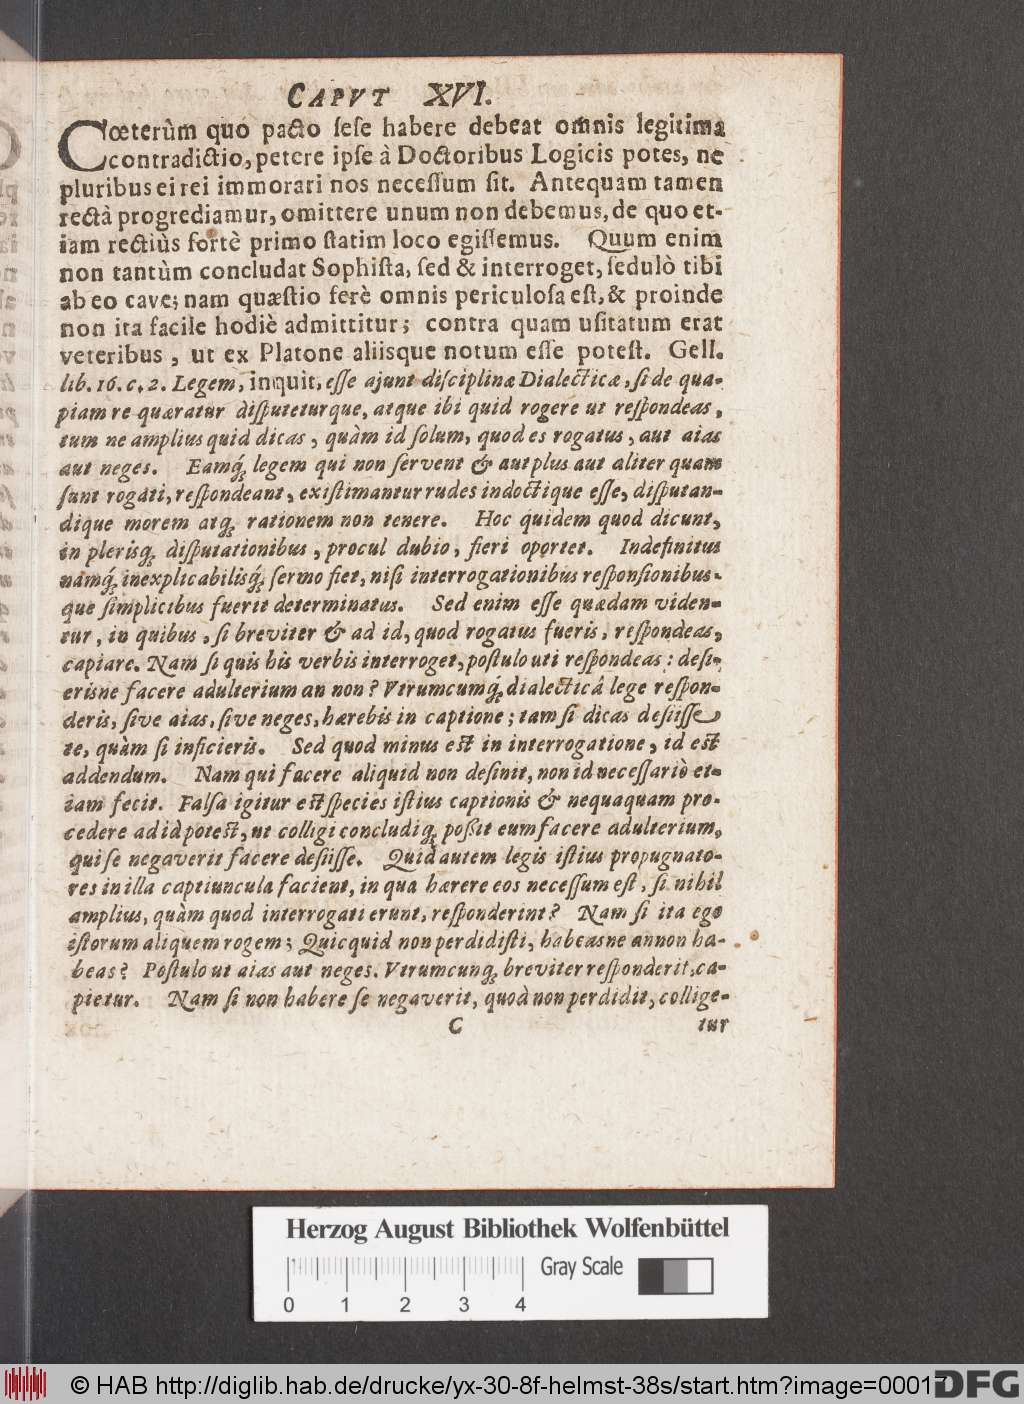 CAPVT XVI.
Cœterùm quo pacto ſeſe habere debeat omnis legitima
contradictio, petere ipſe à Doctoribus Logicis potes, ne
pluribus ei rei immorari nos neceſſum ſit. Antequam tamen
rectà progrediamur, omittere unum non debemus, de quo et-
iam rectiùs fortè primo ſtatim loco egiſſemus. Quum enim
non tantùm concludat Sophiſta, ſed & interroget, ſedulò tibi
ab eo cave; nam quæſtio ferè omnis periculoſa eſt, & proinde
non ita facile hodiè admittitur; contra quam uſitatum erat
veteribus, ut ex Platone aliisque notum eſſe poteſt. Gell.
lib. 16. c. 2. Legem, inquit, eſſe ajunt diſciplinæ Dialecticæ, ſi de qua-
piam re quæratur diſputeturque, atque ibi quid rogere ut reſpondeas,
tum ne amplius quid dicas, quàm id ſolum, quod es rogatus, aut aias
aut neges. Eamq́ꝫ legem qui non ſervent & aut plus aut aliter quam
ſunt rogati, reſpondeant, exiſtimantur rudes indoctique eſſe, diſputan-
dique morem atqꝫ rationem non tenere. Hoc quidem quod dicunt,
in plerisqꝫ diſputationibus, procul dubio, fieri oportet. Indefinitus
namq́ꝫ inexplicabilisq́ꝫ ſermo fiet, niſi interrogationibus reſponſionibus-
que ſimplicibus fuerit determinatus. Sed enim eſſe quædam viden-
tur, in quibus, ſi breviter & ad id, quod rogatus fueris, reſpondeas,
capiare. Nam ſi quis his verbis interroget, poſtulo uti reſpondeas: deſi-
erisne facere adulterium an non? Vtrumcumq́ꝫ dialecticâ lege reſpon-
deris, ſive aias, ſive neges, hærebis in captione; tam ſi dicas deſiiſſe
te, quàm ſi inficieris. Sed quod minus eſt in interrogatione, id eſt
addendum. Nam qui facere aliquid non deſinit, non id neceſſariò et-
iam fecit. Falſa igitur eſt ſpecies iſtius captionis & nequaquam pro-
cedere ad id poteſt, ut colligi concludiqꝫ poſſit eum facere adulterium,
qui ſe negaverit facere deſiiſſe. Quid autem legis iſtius propugnato-
res in illa captiuncula facient, in qua hærere eos neceſſum eſt, ſi nihil
amplius, quàm quod interrogati erunt, reſponderint? Nam ſi ita ego
iſtorum aliquem rogem; Quicquid non perdidiſti, habeasne annon ha-
beas? Poſtulo ut aias aut neges. Vtrumcunqꝫ breviter reſponderit, ca-
pietur. Nam ſi non habere ſe negaverit, quod non perdidit, collige-
C tur
Herzog August Bibliothek Wolfenbüttel
Gray Scale
0 1 2 3 4
© HAB http://diglib.hab.de/drucke/yx-30-8f-helmst-38s/start.htm?image=00017
DFG